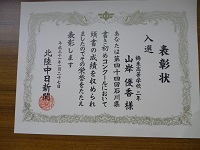 表彰状
入選
鶴来高等学校二年
山岸優香様
あなたは第四十四回石川県
書き初めコンクールにおいて
頭書の成績を収められ
ましたのでその栄誉をたたえ
表彰します
平成三十一年一月二十七日
北陸中日新聞